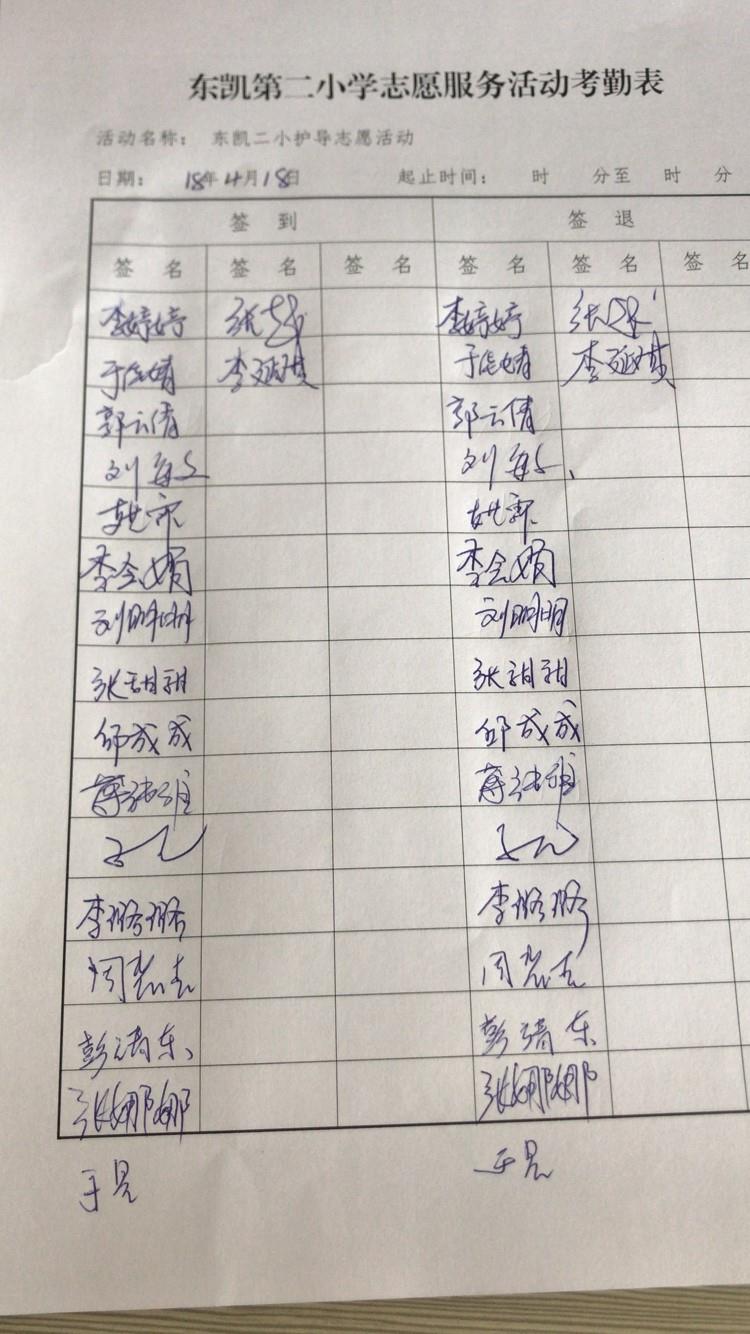 东凯第二小学志愿服务活动考勤表
活动名称： 东凯二小护导志愿活动
日期： 18年4月18日 起止时间： 时 分至 时 分
签 到 签 退
签 名 签 名 签 名 签 名 签 名 签 名
李婷婷 张 李婷婷 张
于 婧 李 琪 于 婧 李 琪
郭云倩 郭云倩
刘 刘
姚 姚
李会娟 李会娟
刘明明 刘明明
张甜甜 张甜甜
邱成成 邱成成
蒋 蒋
李璐璐 李璐璐
周 周
彭清东 彭清东
张娜娜 张娜娜
于昆 于昆